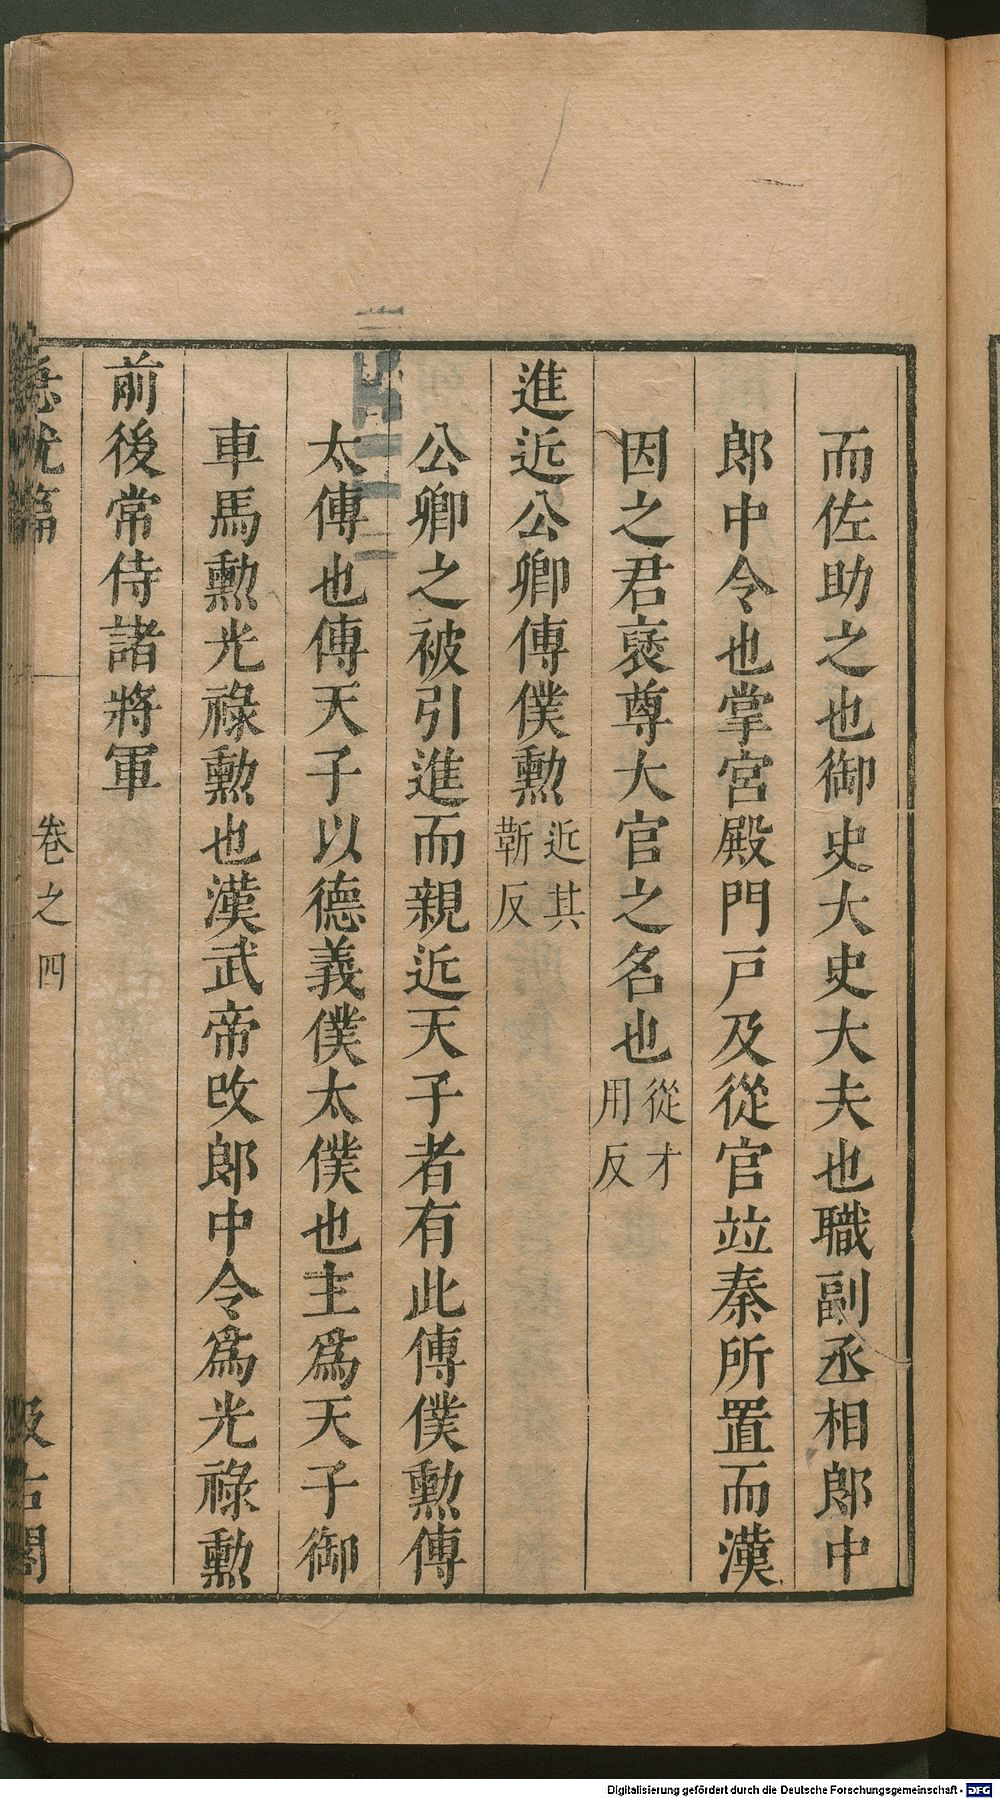 而佐助之也御史大史大夫也職副丞相郎中
郎中令也掌宮殿門戸及從官竝秦所置而漢
因之君褎尊大官之名也從才用反
進近公卿傅僕勲近其靳反
公卿之被引進而親近天子者有此傅僕勲傅
太傅也傅天子以德義僕太僕也主爲天子御
車馬勲光祿勲也漢武帝改郎中令爲光祿勲
前後常侍諸將軍
急就篇 卷之四 汲古閣
Digitalisierung gefördert durch die Deutsche Forschungsgemeinschaft - DFG